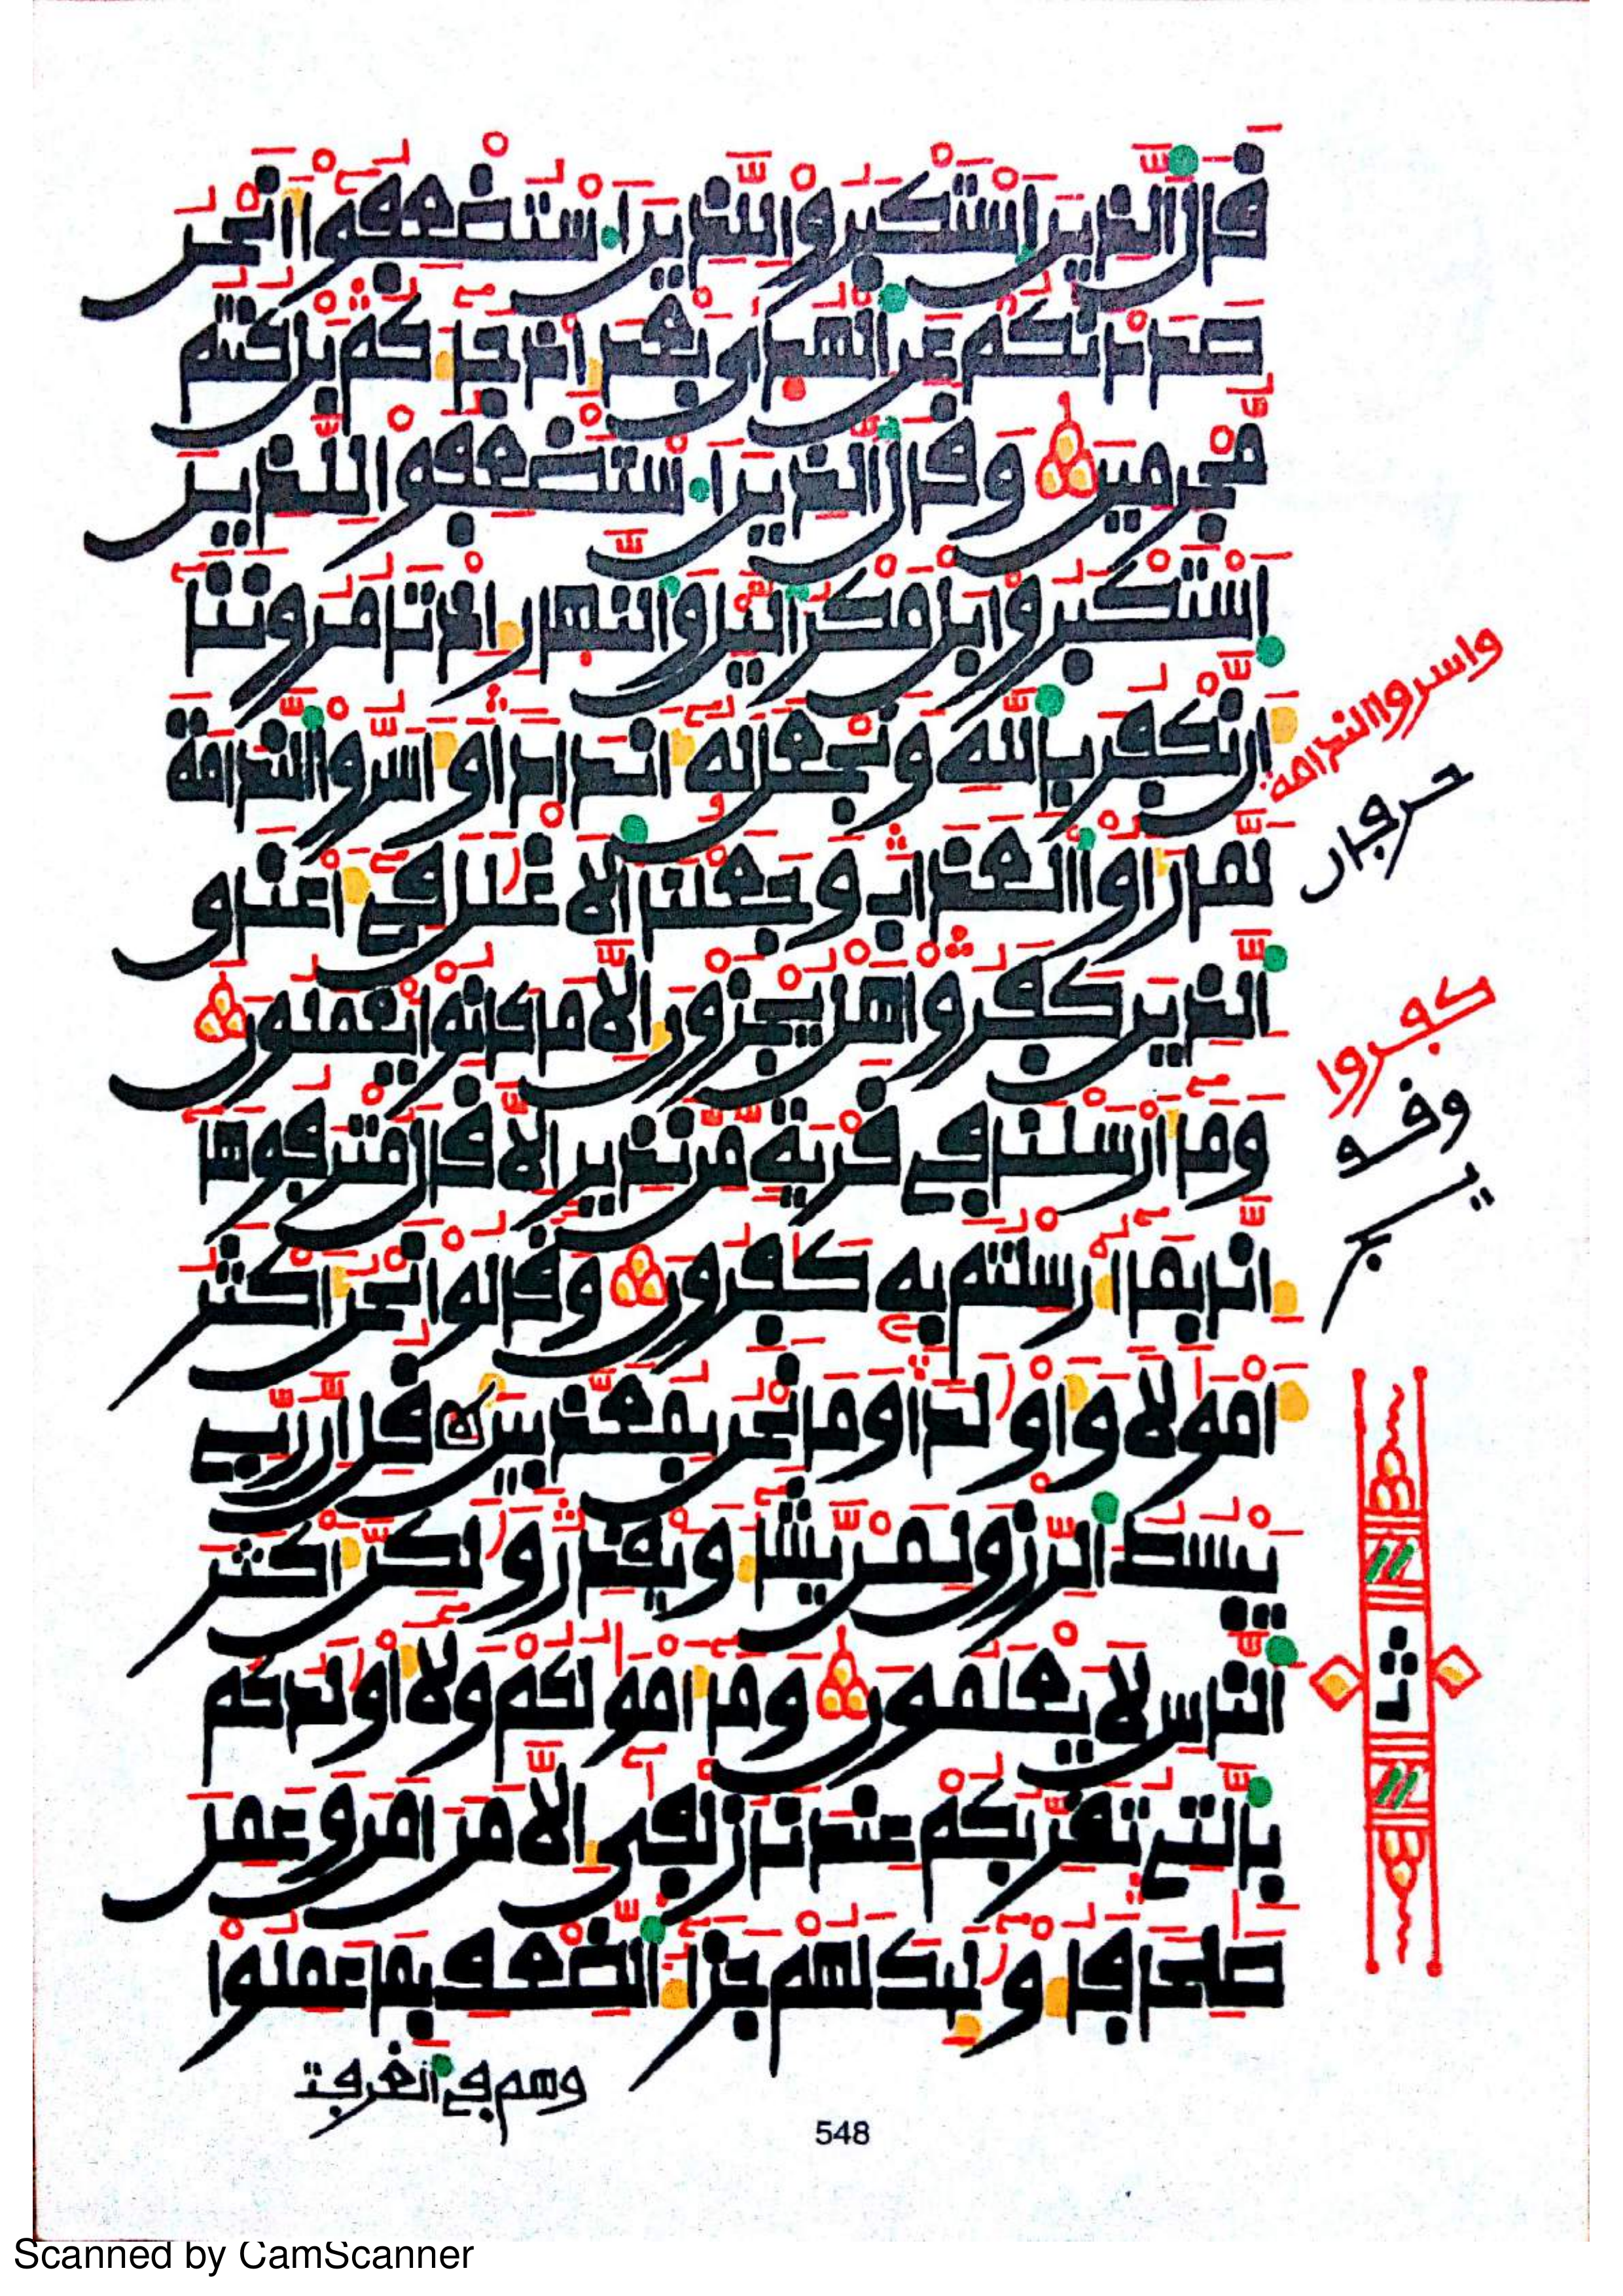 قال الذين استكبروا للذين استضعفوا أنحن
صددنكم عن الهدى بعد إذ جاءكم بل كنتم
مجرمين وقال الذين استضعفوا للذين
استكبروا بل مكر اليل والنهار إذ تامروننا
أن نكفر بالله ونجعل له أندادا وأسروا الندامة
لما رأوا العذاب وجعلنا الأغلل في أعناق
الذين كفروا هل يجزون إلا ما كانوا يعملون
وما أرسلنا في قرية من نذير إلا قال مترفوها
إنا بما أرسلتم به كفرون وقالوا نحن أكثر
أمولا وأولدا وما نحن بمعذبين قل إن ربي
يبسط الرزق لمن يشاء ويقدر ولكن أكثر
الناس لا يعلمون وما أمولكم ولا أولدكم
بالتي تقربكم عندنا زلفى إلا من امن وعمل
صلحا فأولئك لهم جزاء الضعف بما عملوا
وهم في الغرفت
واسروا الندامة
كفروا
وقف
ثمن
548
Scanned by CamScanner